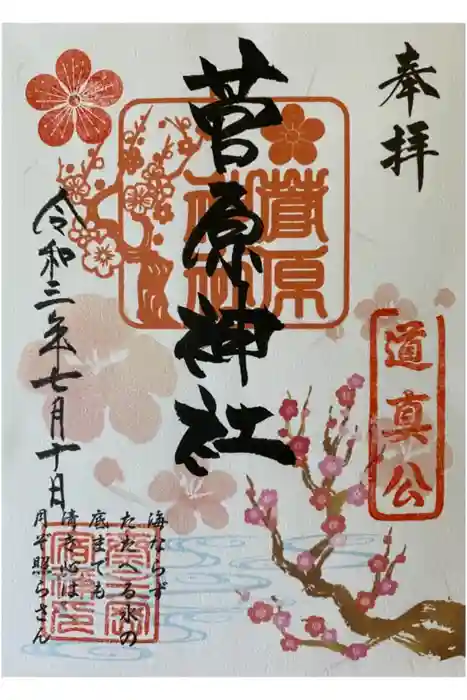 奉拝
菅原神社
菅原
神社
道真公
令和三年七月十日
海ならず
たたへる水の
底までも
清き心は
月ぞ照らさん